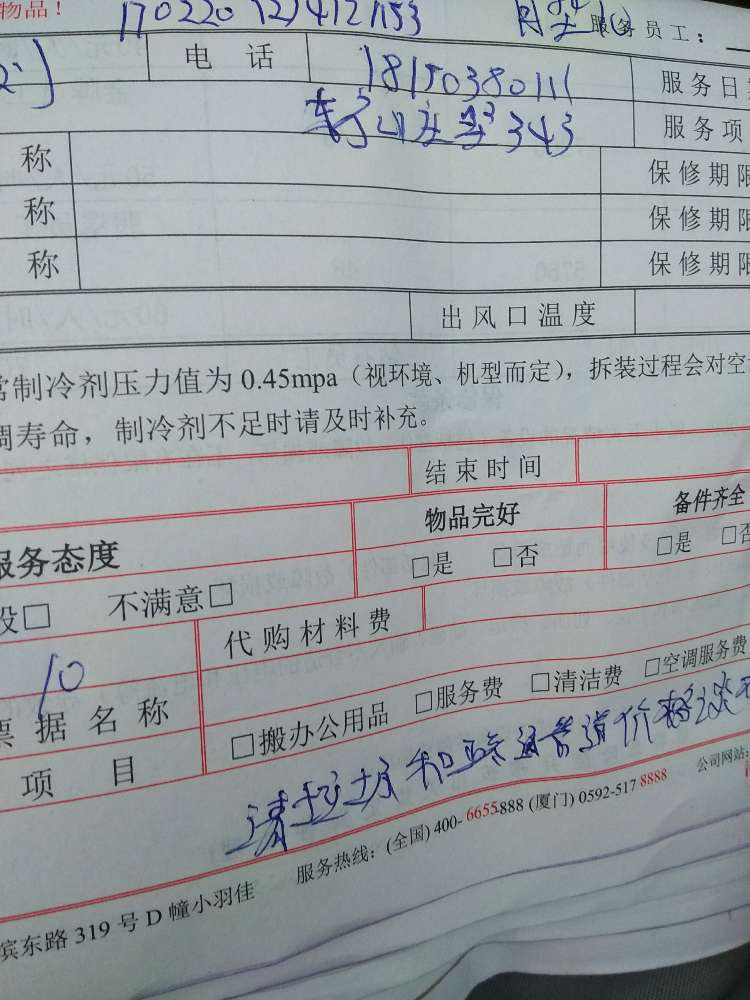 物品!
服务员工:
电话 18150380111 服务日
343 服务项
称 保修期限
称 保修期限
称 保修期限
出风口温度
常制冷剂压力值为 0.45mpa(视环境、机型而定),拆装过程会对空
调寿命,制冷剂不足时请及时补充。
结束时间
服务态度 物品完好 备件齐全
般□ 不满意□ □是 □否 □是 □否
10 代购材料费
票据名称 □搬办公用品 □服务费 □清洁费 □空调服务费
项目
请 和疏通管道价格谈
服务热线:(全国) 400-6655-888 (厦门) 0592-517 8888 公司网站:
滨东路 319 号 D 幢小羽佳